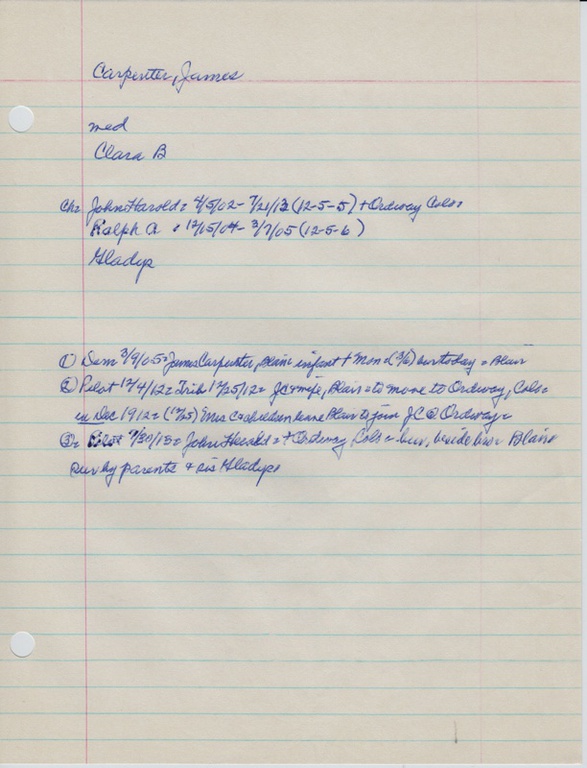 Carpenter, James
med
Clara B
Chr John Harold = 4/5/02 - 7/21/13 (12-5-5) + Ordway Colo =
Ralph A = 12/05/04 - 3/7/05 (12-5-6)
Gladys
(1) Dem 3/9/05 = James Carpenter, Blair infant + Mon = (3/6) bur today = Blair
(2) Pilot 12/4/12 = Trib 12/25/12 = JC & wife, Blair = to move to Ordway, Colo =
in Dec 1912 = (12/25) Mrs C & children leave Blair to join JC @ Ordway =
(3) = Pilot 7/30/13 = John Harold = + Ordway Colo = bur, beside bro = Blair
sur by parents + sis Gladys =